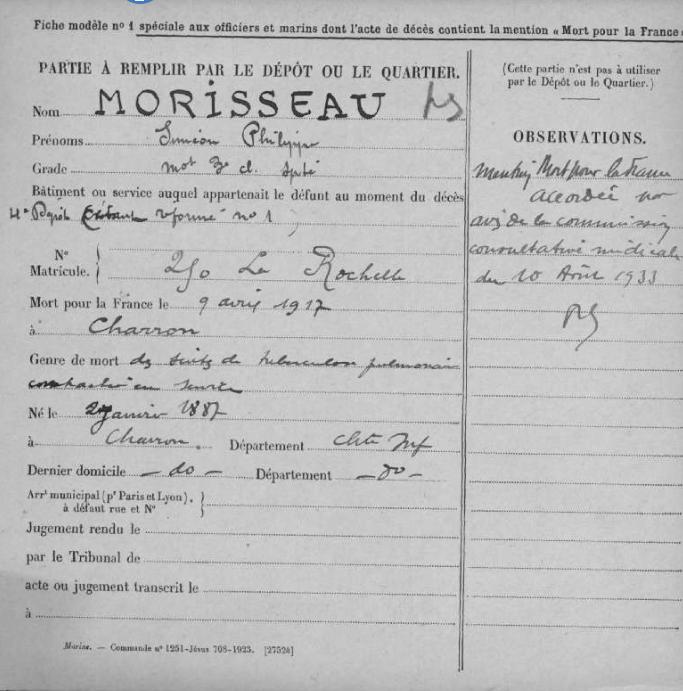 Fiche modèle nº 1 spéciale aux officiers et marins dont l'acte de décès contient la mention « Mort pour la France
PARTIE À REMPLIR PAR LE DÉPÔT OU LE QUARTIER.
Nom MORISSEAU
Prénoms Siméon Philippe
Grade mot 3e cl.
Bâtiment ou service auquel appartenait le défunt au moment du décès
4e Dépôt réformé no 1
No
Matricule. 250 La Rochelle
Mort pour la France le 9 avril 1917
à Charron
Genre de mort des suites de tuberculose pulmonaire
contractée en service
Né le janvier 1887
à Charron. Département Chte Infre
Dernier domicile — do — Département — do —
Arrt municipal (pr Paris et Lyon),
à défaut rue et No
Jugement rendu le
par le Tribunal de
acte ou jugement transcrit le
à
Marine. — Commande nº 1251-Jésus 708-1925. [27524]
(Cette partie n'est pas à utiliser
par le Dépôt ou le Quartier.)
OBSERVATIONS.
Mention Mort pour la France
accordée par
avis de la commission
consultative médicale
du 10 Août 1933